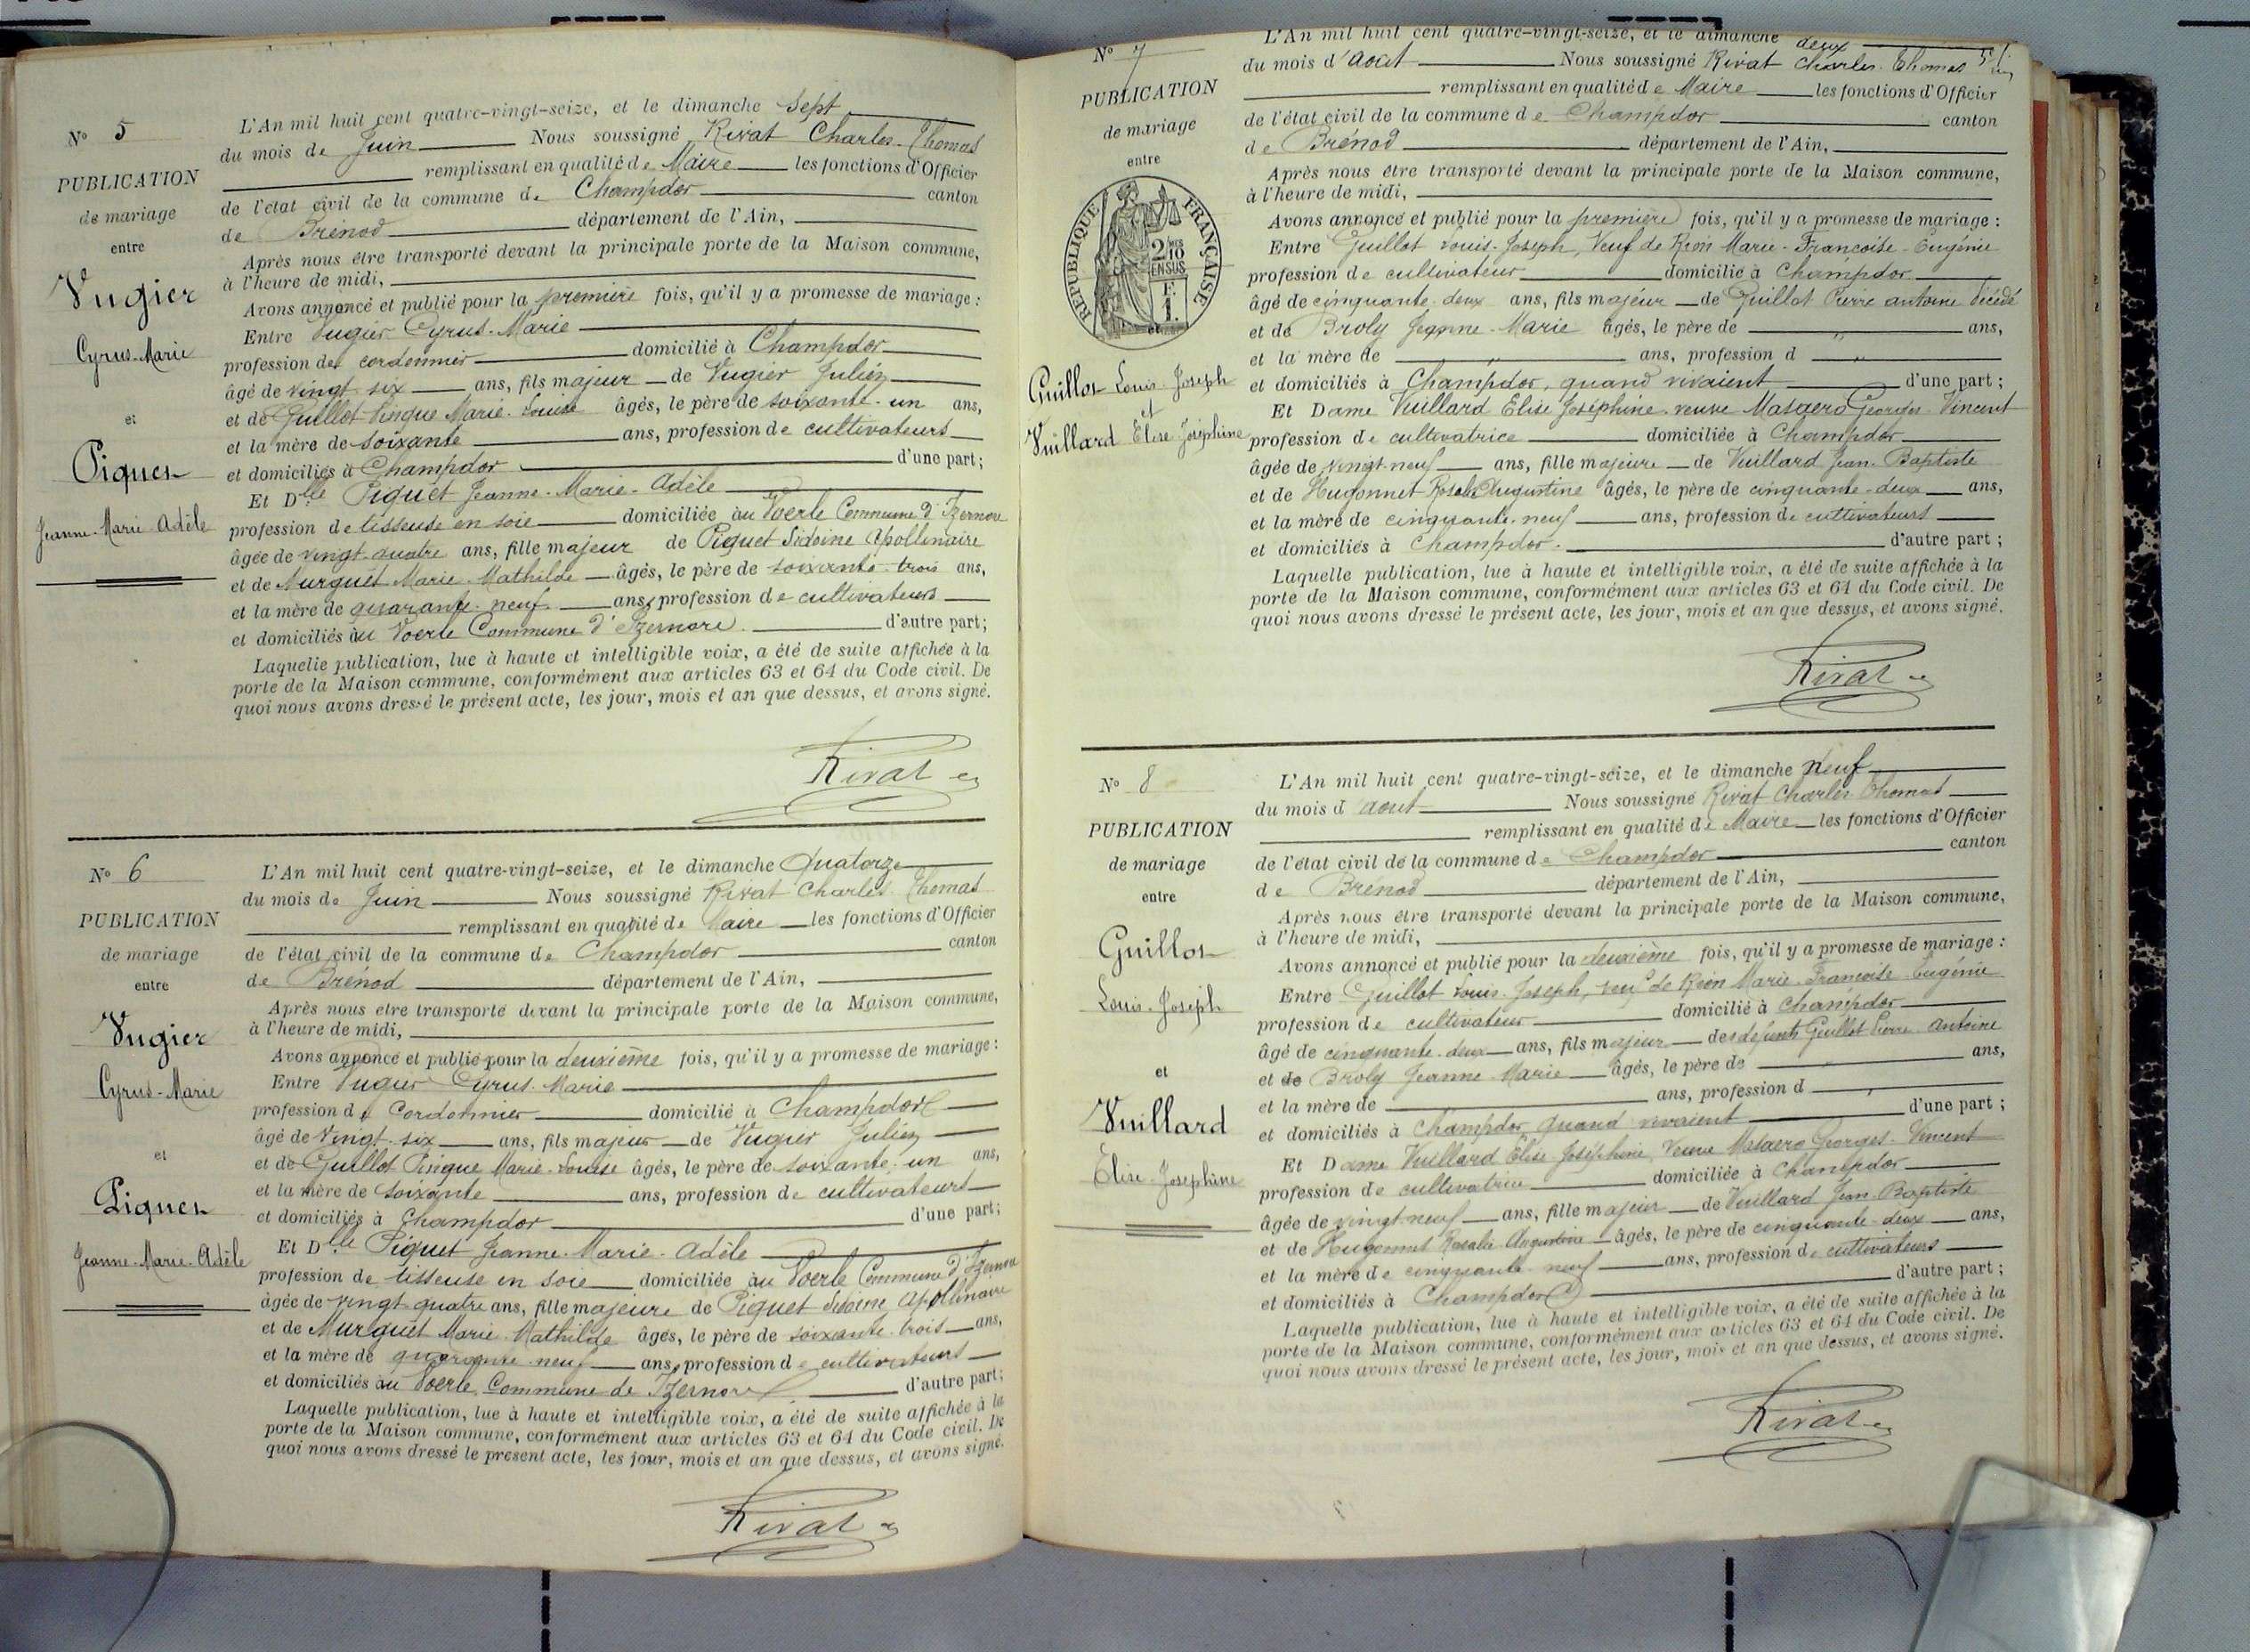 Nº 5
PUBLICATION
de mariage
entre
Vugier
Cyrus-Marie
et
Piquet
Jeanne-Marie-Adèle
L'An mil huit cent quatre-vingt-seize, et le dimanche sept
du mois de Juin Nous soussigné Rivat Charles-Thomas
remplissant en qualité de Maire les fonctions d'Officier
de l'état civil de la commune de Champdor canton
de Brénod département de l'Ain,
Après nous être transporté devant la principale porte de la Maison commune,
à l'heure de midi,
Avons annoncé et publié pour la première fois, qu'il y a promesse de mariage :
Entre Vugier Cyrus-Marie
profession de cordonnier domicilié à Champdor
âgé de vingt-six ans, fils majeur de Vugier Julien
et de Guillot Pingue Marie-Louise âgés, le père de soixante-un ans,
et la mère de soixante ans, profession de cultivateurs
et domiciliés à Champdor d'une part;
Et Dlle Piquet Jeanne-Marie-Adèle
profession de tisseuse en soie domiciliée au Voerle Commune d'Izernore
âgée de vingt-quatre ans, fille majeur de Piquet Sidoine Apollinaire
et de Murguet Marie-Mathilde âgés, le père de soixante-trois ans,
et la mère de quarante-neuf ans, profession de cultivateurs
et domiciliés au Voerle Commune d'Izernore d'autre part;
Laquelle publication, lue à haute et intelligible voix, a été de suite affichée à la
porte de la Maison commune, conformément aux articles 63 et 64 du Code civil. De
quoi nous avons dressé le présent acte, les jour, mois et an que dessus, et avons signé.
Rivat
Nº 6
PUBLICATION
de mariage
entre
Vugier
Cyrus-Marie
et
Piquet
Jeanne-Marie-Adèle
L'An mil huit cent quatre-vingt-seize, et le dimanche Quatorze
du mois de Juin Nous soussigné Rivat Charles-Thomas
remplissant en qualité de Maire les fonctions d'Officier
de l'état civil de la commune de Champdor canton
de Brénod département de l'Ain,
Après nous être transporté devant la principale porte de la Maison commune,
à l'heure de midi,
Avons annoncé et publié pour la deuxième fois, qu'il y a promesse de mariage :
Entre Vugier Cyrus-Marie
profession de Cordonnier domicilié à Champdor
âgé de Vingt-six ans, fils majeur de Vugier Julien
et de Guillot Pingue Marie-Louise âgés, le père de soixante-un ans,
et la mère de soixante ans, profession de cultivateurs
et domiciliés à Champdor d'une part;
Et Dlle Piquet Jeanne-Marie-Adèle
profession de tisseuse en soie domiciliée au Voerle Commune d'Izernore
âgée de vingt-quatre ans, fille majeure de Piquet Sidoine Apollinaire
et de Murguet Marie-Mathilde âgés, le père de soixante-trois ans,
et la mère de quarante-neuf ans, profession de cultivateurs
et domiciliés au Voerle Commune de Izernore d'autre part;
Laquelle publication, lue à haute et intelligible voix, a été de suite affichée à la
porte de la Maison commune, conformément aux articles 63 et 64 du Code civil. De
quoi nous avons dressé le présent acte, les jour, mois et an que dessus, et avons signé.
Rivat
Nº 7
PUBLICATION
de mariage
entre
RÉPUBLIQUE FRANÇAISE
2/10
EN SUS
F.
1.
et
Guillot Louis-Joseph
et
Vuillard Elise Joséphine
L'An mil huit cent quatre-vingt-seize, et le dimanche deux
du mois d'Août Nous soussigné Rivat Charles-Thomas
remplissant en qualité de Maire les fonctions d'Officier
de l'état civil de la commune de Champdor canton
de Brénod département de l'Ain,
Après nous être transporté devant la principale porte de la Maison commune,
à l'heure de midi,
Avons annoncé et publié pour la première fois, qu'il y a promesse de mariage :
Entre Guillot Louis-Joseph, Veuf de Rion Marie-Françoise-Eugénie
profession de cultivateur domicilié à Champdor
âgé de cinquante-deux ans, fils majeur de Guillot Pierre antoine décédé
et de Broly Jeanne-Marie âgés, le père de " ans,
et la mère de " ans, profession d "
et domiciliés à Champdor, quand vivaient d'une part;
Et Dame Vuillard Elise Joséphine veuve Masaero Georges-Vincent
profession de cultivatrice domiciliée à Champdor
âgée de vingt-neuf ans, fille majeure de Vuillard Jean-Baptiste
et de Hugonnet Rosalie Augustine âgés, le père de cinquante-deux ans,
et la mère de cinquante-neuf ans, profession de cultivateurs
et domiciliés à Champdor. d'autre part;
Laquelle publication, lue à haute et intelligible voix, a été de suite affichée à la
porte de la Maison commune, conformément aux articles 63 et 64 du Code civil. De
quoi nous avons dressé le présent acte, les jour, mois et an que dessus, et avons signé.
Rivat
Nº 8
PUBLICATION
de mariage
entre
Guillot
Louis-Joseph
et
Vuillard
Elise-Joséphine
L'An mil huit cent quatre-vingt-seize, et le dimanche Neuf
du mois d août Nous soussigné Rivat Charles Thomas
remplissant en qualité de Maire les fonctions d'Officier
de l'état civil de la commune de Champdor canton
de Brénod département de l'Ain,
Après nous être transporté devant la principale porte de la Maison commune,
à l'heure de midi,
Avons annoncé et publié pour la deuxième fois, qu'il y a promesse de mariage :
Entre Guillot Louis-Joseph, veuf de Rion Marie-Françoise-Eugénie
profession de cultivateur domicilié à Champdor
âgé de cinquante-deux ans, fils majeur des défunts Guillot Pierre-Antoine
et de Broly Jeanne-Marie âgés, le père de ans,
et la mère de ans, profession d
et domiciliés à Champdor quand vivaient d'une part;
Et Dame Vuillard Elise Joséphine, Veuve Masaero Georges-Vincent
profession de cultivatrice domiciliée à Champdor
âgée de vingt-neuf ans, fille majeur de Vuillard Jean-Baptiste
et de Hugonnet Rosalie Augustine âgés, le père de cinquante-deux ans,
et la mère de cinquante-neuf ans, profession de cultivateurs
et domiciliés à Champdor d'autre part;
Laquelle publication, lue à haute et intelligible voix, a été de suite affichée à la
porte de la Maison commune, conformément aux articles 63 et 64 du Code civil. De
quoi nous avons dressé le présent acte, les jour, mois et an que dessus, et avons signé.
Rivat